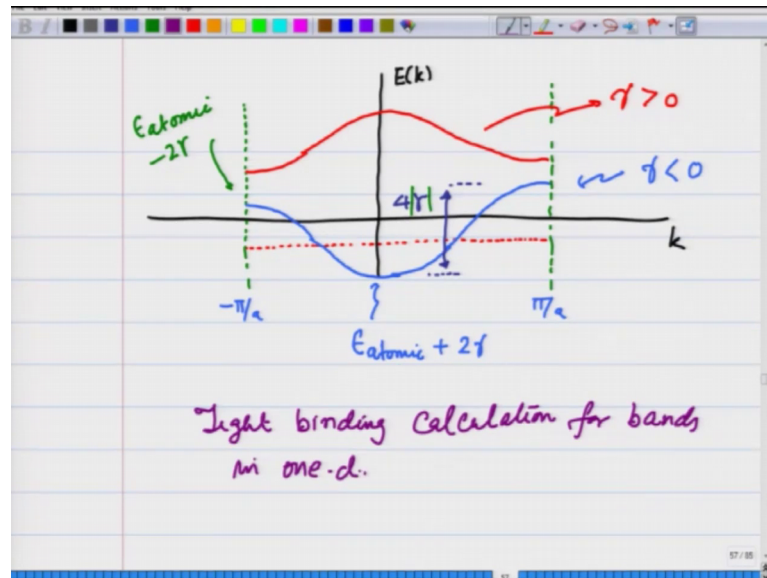 E(k)
Eatomic
-2γ
γ > 0
γ < 0
4|γ|
k
-π/a
π/a
Eatomic + 2γ
Tight binding calculation for bands
in one-d..
57 / 85